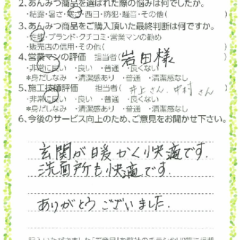 2.あんみつ商品を選ばれた際の悩みは何でしたか。
・結露・暑さ・寒さ・西日・防犯・騒音・その他( )
3.あんみつ商品をご購入頂いた最終判断は何ですか。
・性能・ブランド・クチコミ・営業マンの勧め
・販売店の信用・その他( )
4.営業マンの評価 担当者( 岩田様 )
・非常に良い ・良い ・普通 ・良くない
★身だしなみ ・清潔感あり ・普通 ・清潔感なし
5.施工技術評価 担当者( 井上さん、木村さん )
・非常に良い ・良い ・普通 ・良くない
★身だしなみ ・清潔感あり ・普通 ・清潔感なし
6.今後のサービス向上のため、ご意見をお聞かせ下さい。
玄関が暖かく快適です。
洗面所も快適です。
ありがとうございました.